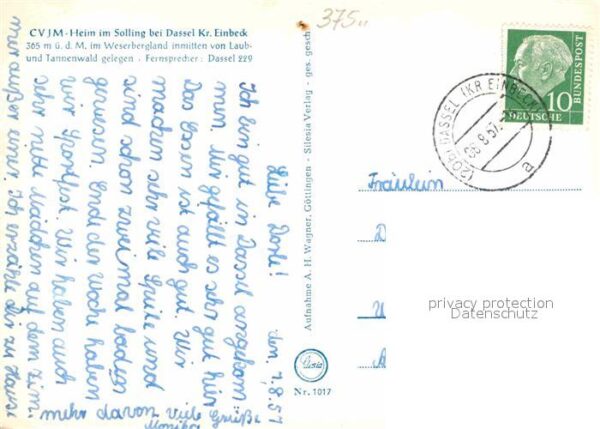 CVJM-Heim im Solling bei Dassel Kr. Einbeck
365 m ü. d. M. im Weserbergland inmitten von Laub-
und Tannenwald gelegen . Fernsprecher: Dassel 229
375.,
den, 7.8.57
Liebe Dorle!
Ich bin gut in Dassel angekom
men. Mir gefällt es sehr gut hier.
Das Essen ist auch gut. Wir
machen sehr viele Spiele und
sind schon zweimal baden
gewesen. Ende der Woche haben
wir Sportfest. Wir haben auch
sehr nette Mädchen auf dem Zim-
mer außer einer. Ich erzähle dir zu Hause
mehr davon viele Grüße
Monika
Aufnahme A. H. Wagner, Göttingen - Silesia Verlag - ges. gesch
Silesia
Nr. 1017
DEUTSCHE
BUNDESPOST
10
(20b) DASSEL (KR EINBECK)
-8.8.57.
e
Fräulein
D
U
A
privacy protection
Datenschutz